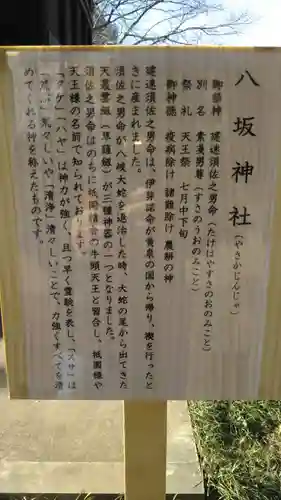 八坂神社（やさかじんじゃ）
御祭神 建速須佐之男命（たけはやすさのおのみこと）
別名 素戔男尊（すさのうおのみこと）
祭礼 天王祭 七月中下旬
御神徳 疫病除け 諸難除け 農耕の神
建速須佐之男命は、伊弉諾命が黄泉の国から帰り、禊を行ったと
きに産まれました。
須佐之男命が八岐大蛇を退治した時、大蛇の尾から出てきた
天叢雲剣（草薙劔）が三種神器の一つとなりました。
須佐之男命はのちに祇園精舎の牛頭天王と習合し、祇園様や
天王様の名前で知られております。
「タケ」「ハヤ」は神力が強く、且つ早く霊験を表し、「スサ」は
「荒ぶ」荒々しいや「清浄」清々しいことで、力強くすべてを清
めてくれる神を称えたものです。